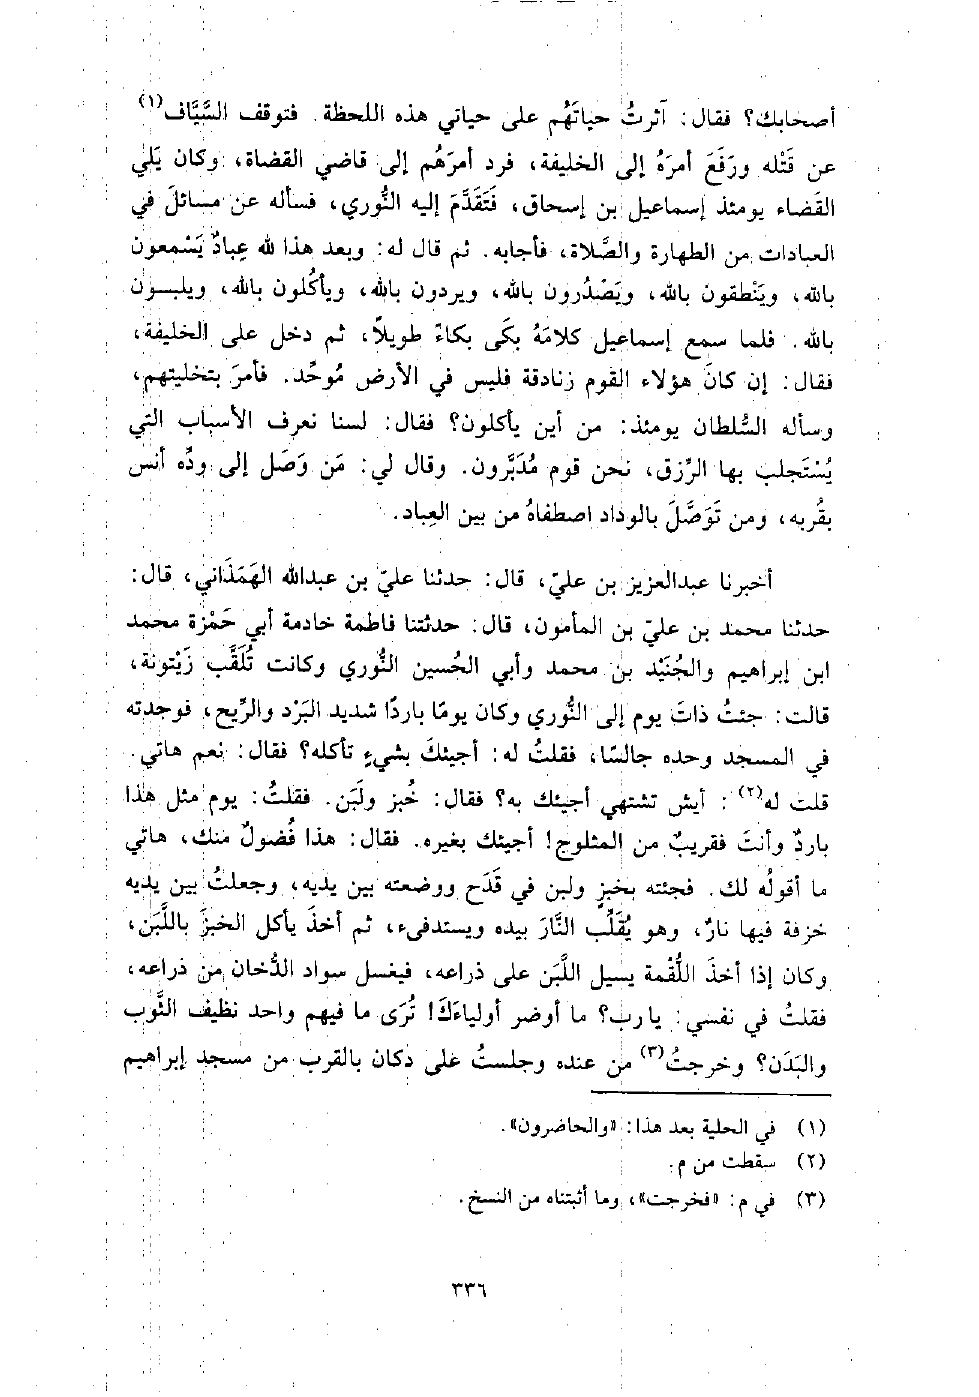 أصحابك؟ فقال: آثرتُ حياتَهُم على حياتي هذه اللحظة. فتوقف السَّيَّاف(١)
عن قَتْله ورَفَعَ أمرَهُ إلى الخليفة، فرد أمرَهُم إلى قاضي القضاة، وكان يَلي
القضاء يومئذ إسماعيل بن إسحاق، فَتَقَدَّمَ إليه النُّوري، فسأله عن مسائلَ في
العبادات من الطهارة والصَّلاة، فأجابه. ثم قال له: وبعد هذا لله عِبادٌ يَسْمعون
بالله، ويَنْطقون بالله، ويَصْدُرون بالله، ويردون بالله، ويأكُلون بالله، ويلبسون
بالله. فلما سمع إسماعيل كلامَهُ بكَى بكاءً طويلاً، ثم دخل على الخليفة،
فقال: إن كانَ هؤلاء القوم زنادقة فليس في الأرض مُوحِّد. فأمرَ بتخليتهم،
وسأله السُّلطان يومئذ: من أين يأكلون؟ فقال: لسنا نعرف الأسباب التي
يُسْتَجلب بها الرِّزق، نحن قوم مُدَبَّرون. وقال لي: مَن وَصَل إلى ودِّه أنس
بقُربه، ومن تَوَصَّلَ بالوداد اصطفاهُ من بين العِباد.
أخبرنا عبدالعزيز بن عليّ، قال: حدثنا عليّ بن عبدالله الهَمَذَاني، قال:
حدثنا محمد بن عليّ بن المأمون، قال: حدثتنا فاطمة خادمة أبي حَمْزة محمد
ابن إبراهيم والجُنَيْد بن محمد وأبي الحُسين النُّوري وكانت تُلَقَّب زَيْتونة،
قالت: جئتُ ذاتَ يوم إلى النُّوري وكان يومًا باردًا شديد البَرْد والرِّيح، فوجدته
في المسجد وحده جالسًا، فقلتُ له: أجيئكَ بشيءٍ تأكله؟ فقال: نعم هاتي.
قلت له(٢): أيش تشتهي أجيئك به؟ فقال: خُبز ولَبَن. فقلتُ: يوم مثل هذا
باردٌ وأنتَ فقريبٌ من المثلوج! أجيئك بغيره. فقال: هذا فُضولٌ منك، هاتي
ما أقولُه لك. فجئته بخبزٍ ولبن في قَدَح ووضعته بين يديه، وجعلتُ بين يديه
خزفة فيها نارٌ، وهو يُقَلِّب النَّارَ بيده ويستدفىء، ثم أخذَ يأكل الخبزَ باللَّبَن،
وكان إذا أخذَ اللُّقمة يسيل اللَّبَن على ذراعه، فيغسل سواد الدُّخان من ذراعه،
فقلتُ في نفسي: يارب؟ ما أوضر أولياءَكَ! تُرَى ما فيهم واحد نظيف الثَّوب
والبَدَن؟ وخرجتُ(٣) من عنده وجلستُ على دكان بالقرب من مسجد إبراهيم
(١) في الحلية بعد هذا: «والحاضرون».
(٢) سقطت من م.
(٣) في م: «فخرجت»، وما أثبتناه من النسخ.
٣٣٦